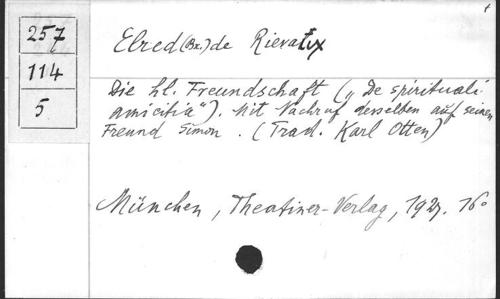 257
114
5
Elred (Bx.) de Rievalix
Die hl. Freundschaft („De spirituali
amicitia"). Mit Nachruf desselben auf seinen
Freund Simon. (Trad. Karl Otten)
München, Theatiner-Verlag, 1927. 16°